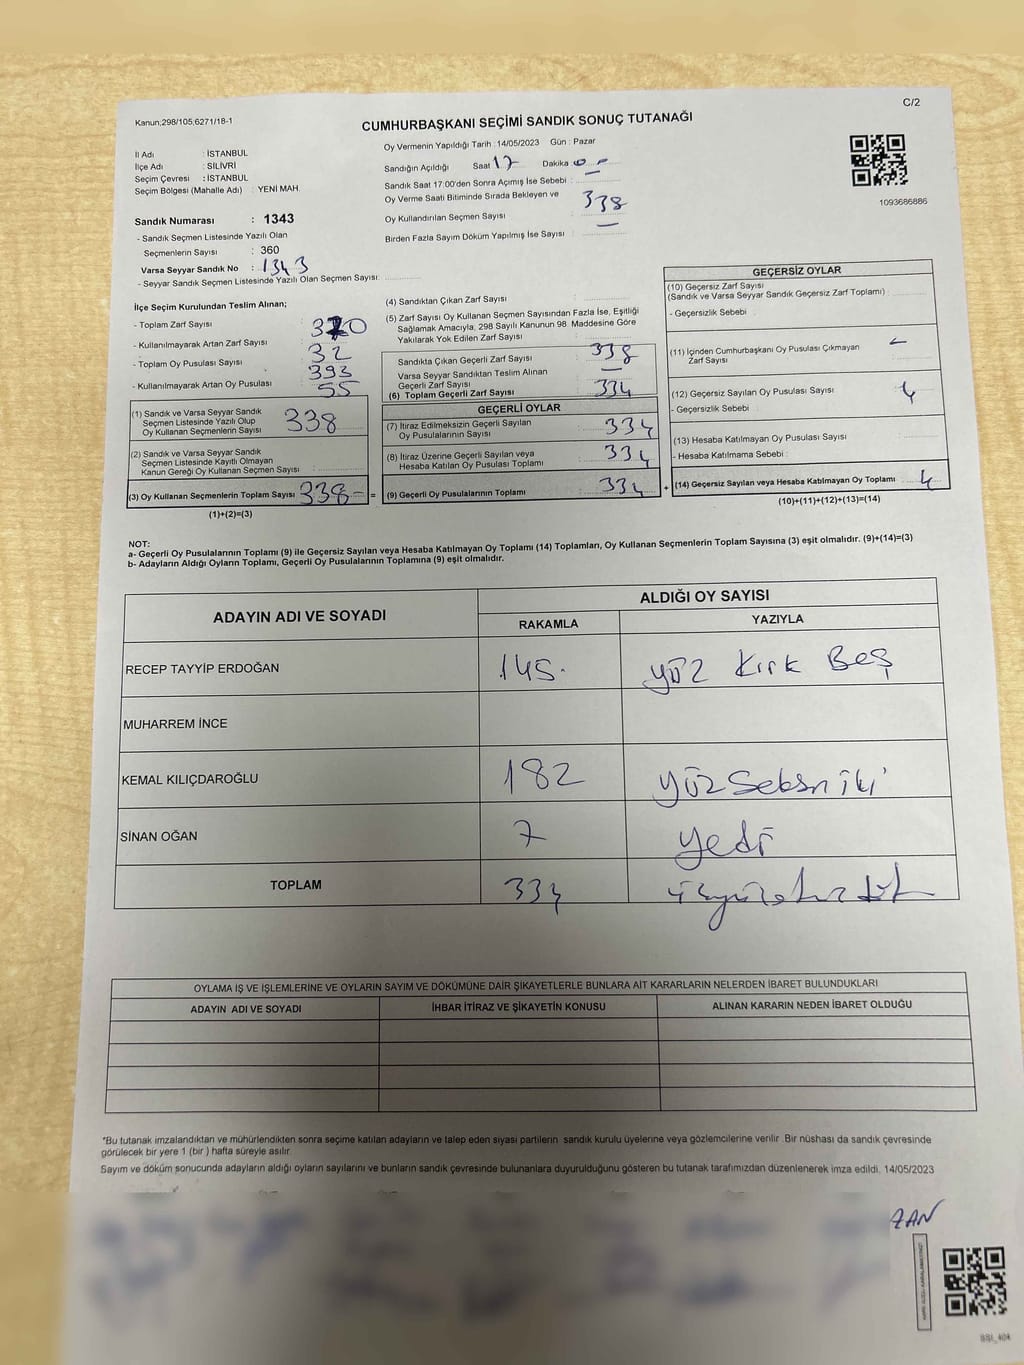 C/2
Kanun;298/105;6271/18-1
CUMHURBAŞKANI SEÇİMİ SANDIK SONUÇ TUTANAĞI
İl Adı : İSTANBUL
İlçe Adı : SİLİVRİ
Seçim Çevresi : İSTANBUL
Seçim Bölgesi (Mahalle Adı) : YENİ MAH.
Sandık Numarası : 1343
- Sandık Seçmen Listesinde Yazılı Olan
Seçmenlerin Sayısı : 360
Varsa Seyyar Sandık No : 1343
- Seyyar Sandık Seçmen Listesinde Yazılı Olan Seçmen Sayısı:
Oy Vermenin Yapıldığı Tarih : 14/05/2023 Gün : Pazar
Sandığın Açıldığı Saat 17 Dakika :
Sandık Saat 17:00'den Sonra Açımış İse Sebebi :
Oy Verme Saati Bitiminde Sırada Bekleyen ve
Oy Kullandırılan Seçmen Sayısı : 338
Birden Fazla Sayım Döküm Yapılmış İse Sayısı : —
1093686886
İlçe Seçim Kurulundan Teslim Alınan;
- Toplam Zarf Sayısı : 370
- Kullanılmayarak Artan Zarf Sayısı : 32
- Toplam Oy Pusulası Sayısı : 393
- Kullanılmayarak Artan Oy Pusulası : 55
(1) Sandık ve Varsa Seyyar Sandık
Seçmen Listesinde Yazılı Olup
Oy Kullanan Seçmenlerin Sayısı 338
(2) Sandık ve Varsa Seyyar Sandık
Seçmen Listesinde Kayıtlı Olmayan
Kanun Gereği Oy Kullanan Seçmen Sayısı :
(3) Oy Kullanan Seçmenlerin Toplam Sayısı 338 =
(1)+(2)=(3)
(4) Sandıktan Çıkan Zarf Sayısı :
(5) Zarf Sayısı Oy Kullanan Seçmen Sayısından Fazla İse, Eşitliği
Sağlamak Amacıyla, 298 Sayılı Kanunun 98. Maddesine Göre
Yakılarak Yok Edilen Zarf Sayısı :
Sandıkta Çıkan Geçerli Zarf Sayısı : 338
Varsa Seyyar Sandıktan Teslim Alınan
Geçerli Zarf Sayısı : —
(6) Toplam Geçerli Zarf Sayısı : 334
GEÇERLİ OYLAR
(7) İtiraz Edilmeksizin Geçerli Sayılan
Oy Pusulalarının Sayısı : 334
(8) İtiraz Üzerine Geçerli Sayılan veya
Hesaba Katılan Oy Pusulası Toplamı : 334
(9) Geçerli Oy Pusulalarının Toplamı : 334 +
GEÇERSİZ OYLAR
(10) Geçersiz Zarf Sayısı
(Sandık ve Varsa Seyyar Sandık Geçersiz Zarf Toplamı) :
- Geçersizlik Sebebi :
(11) İçinden Cumhurbaşkanı Oy Pusulası Çıkmayan
Zarf Sayısı : —
(12) Geçersiz Sayılan Oy Pusulası Sayısı : 4
- Geçersizlik Sebebi :
(13) Hesaba Katılmayan Oy Pusulası Sayısı :
- Hesaba Katılmama Sebebi :
(14) Geçersiz Sayılan veya Hesaba Katılmayan Oy Toplamı : 4
(10)+(11)+(12)+(13)=(14)
NOT:
a- Geçerli Oy Pusulalarının Toplamı (9) ile Geçersiz Sayılan veya Hesaba Katılmayan Oy Toplamı (14) Toplamları, Oy Kullanan Seçmenlerin Toplam Sayısına (3) eşit olmalıdır. (9)+(14)=(3)
b- Adayların Aldığı Oyların Toplamı, Geçerli Oy Pusulalarının Toplamına (9) eşit olmalıdır.
ADAYIN ADI VE SOYADI ALDIĞI OY SAYISI
RAKAMLA YAZIYLA
RECEP TAYYİP ERDOĞAN 145 yüz Kırk Beş
MUHARREM İNCE
KEMAL KILIÇDAROĞLU 182 yüz Seksen iki
SİNAN OĞAN 7 yedi
TOPLAM 334
OYLAMA İŞ VE İŞLEMLERİNE VE OYLARIN SAYIM VE DÖKÜMÜNE DAİR ŞİKAYETLERLE BUNLARA AİT KARARLARIN NELERDEN İBARET BULUNDUKLARI
ADAYIN ADI VE SOYADI İHBAR İTİRAZ VE ŞİKAYETİN KONUSU ALINAN KARARIN NEDEN İBARET OLDUĞU
*Bu tutanak imzalandıktan ve mühürlendikten sonra seçime katılan adayların ve talep eden siyasi partilerin sandık kurulu üyelerine veya gözlemcilerine verilir .Bir nüshası da sandık çevresinde
görülecek bir yere 1 (bir ) hafta süreyle asılır.
Sayım ve döküm sonucunda adayların aldığı oyların sayılarını ve bunların sandık çevresinde bulunanlara duyurulduğunu gösteren bu tutanak tarafımızdan düzenlenerek imza edildi. 14/05/2023
ZAN
SSI_404